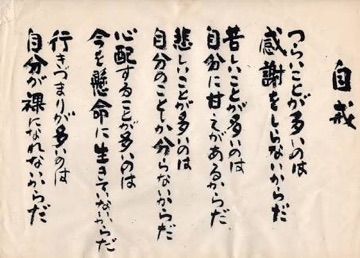 自戒
つらいことが多いのは
感謝をしらないからだ
苦しいことが多いのは
自分に甘えがあるからだ
悲しいことが多いのは
自分のことしか分らないからだ
心配することが多いのは
今を懸命に生きていないからだ
行きづまりが多いのは
自分が裸になれないからだ